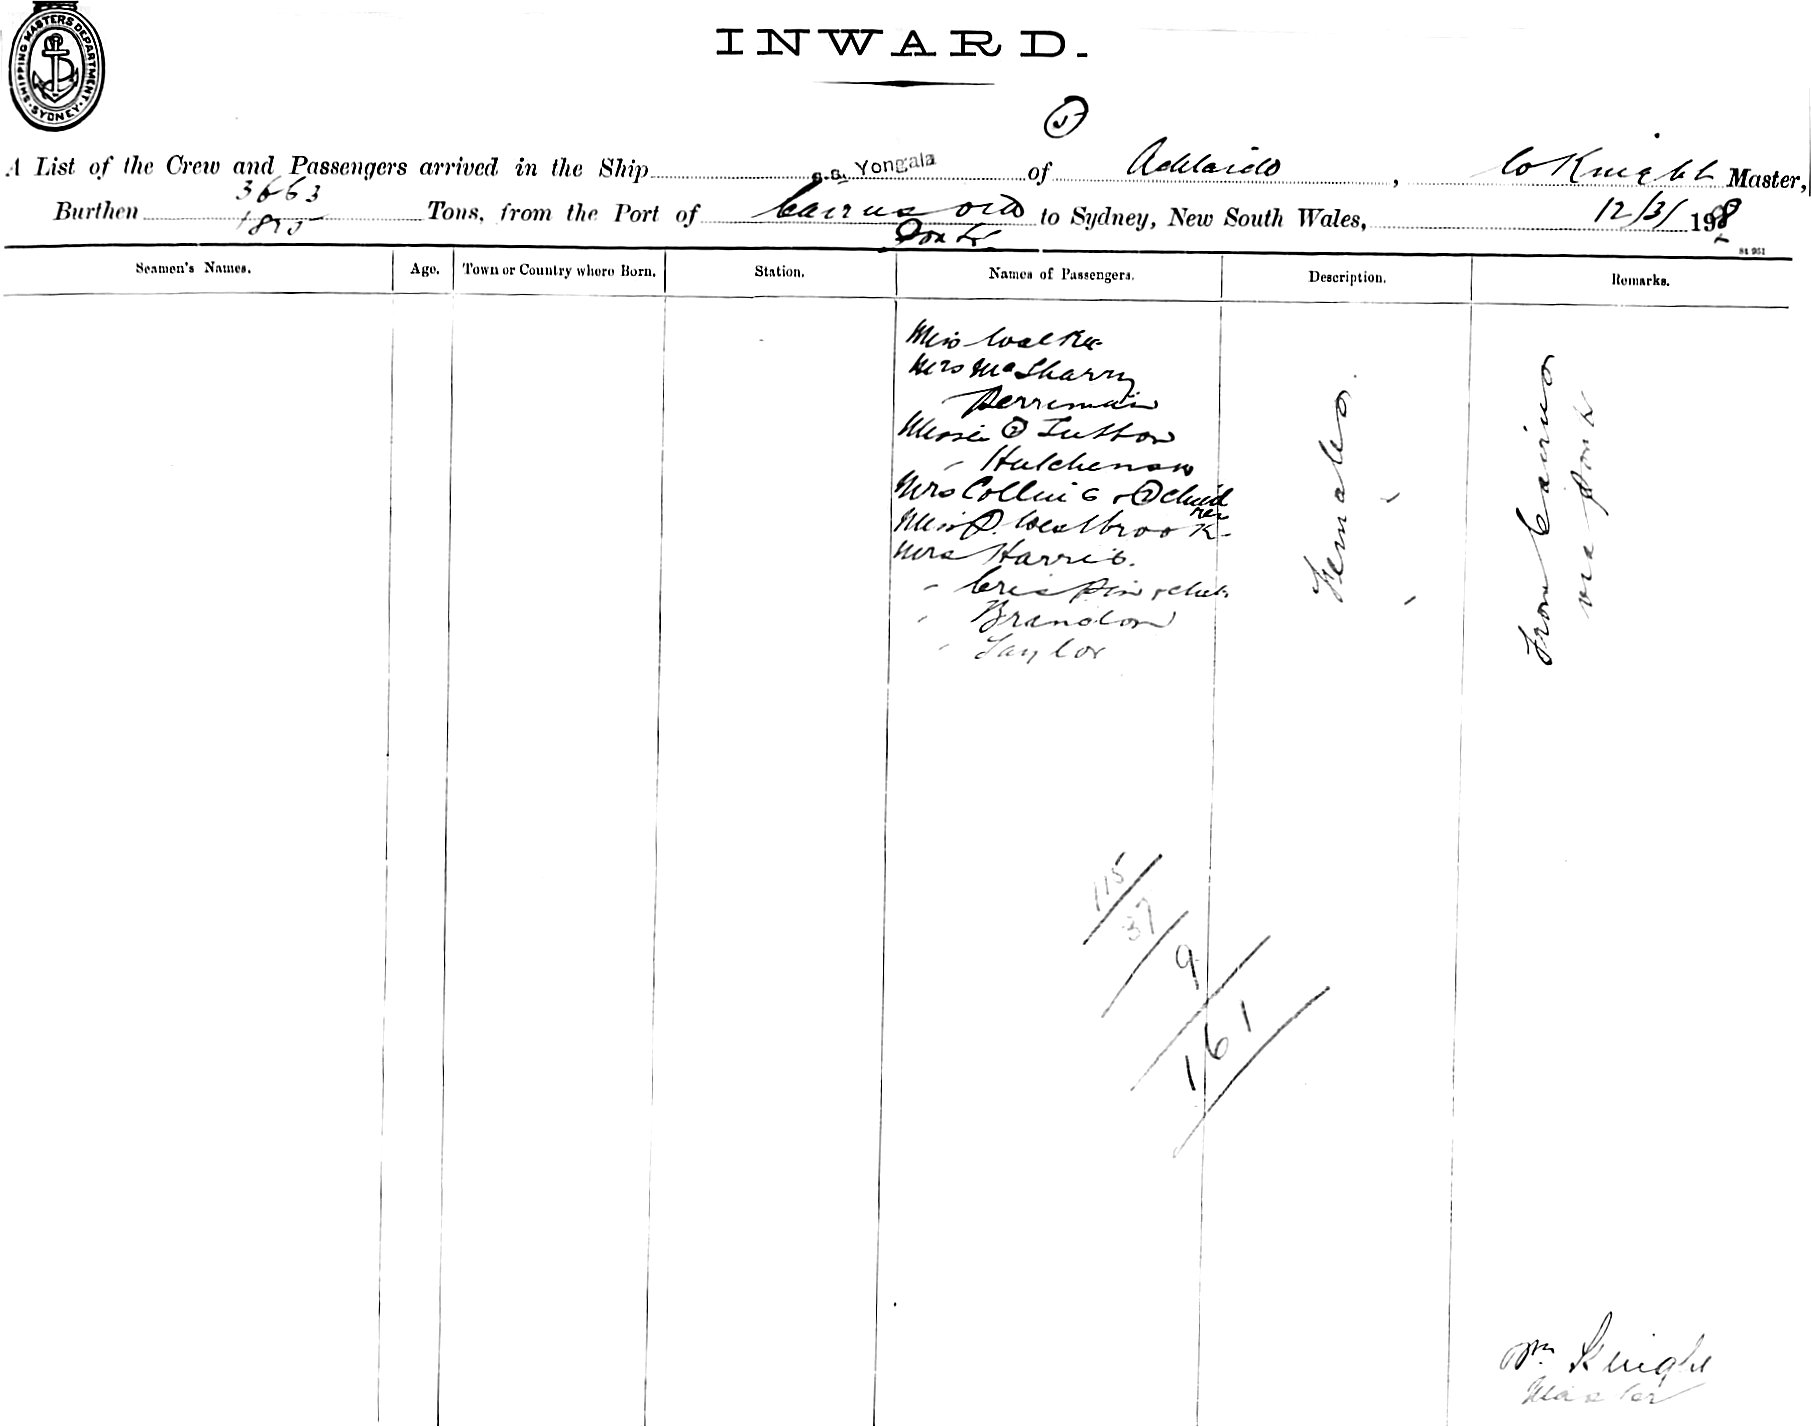 SHIPPING MASTERS DEPARTMENT. SYDNEY
INWARD.
5
A List of the Crew and Passengers arrived in the Ship s.s. Yongala of Adelaide, W Knight Master,
3663
1825
Burthen Tons, from the Port of Cairns via to Sydney, New South Wales, 12/3/ 1908
Ports
84 951
Seamen's Names. Age. Town or Country where Born. Station. Names of Passengers. Description. Remarks.
Miss Walker
Mrs McSharry
Perriman
Misses (2) Sutton
" Hutchenson
Mrs Collins & (2) children
Miss P. Westbrook
Mrs Harris.
" Crispin & child
" Brandon
" Taylor
Females
From Cairns
via ports
115
37
9
161
Wm Knight
Master